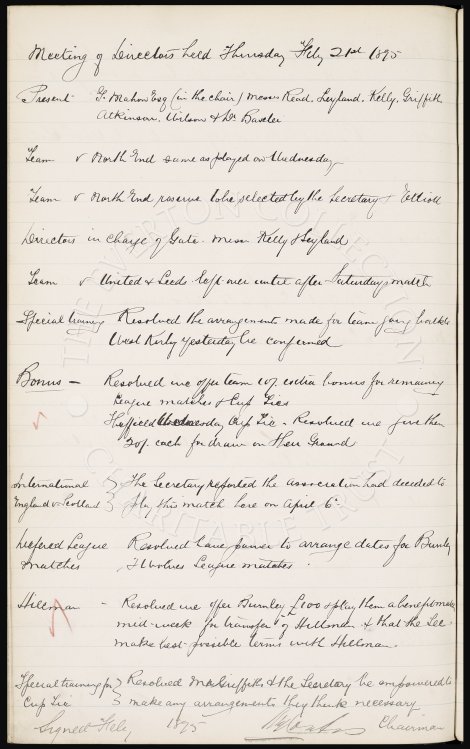 Meeting of Directors held Thursday Feby 21st 1895
Present G. Mahon Esq (in the chair) Messrs Read, Leyland, Kelly, Griffith
Atkinson, Wilson & Dr Baxter
Team v North End same as played on Wednesday
Team v North End reserve to be selected by the Secretary & Elliott
Directors in charge of Gate. Messrs Kelly & Leyland
Team v United & Leeds left over until after Saturdays match
Special training Resolved the arrangements made for team going back to
West Kirby yesterday be confirmed
Bonus — Resolved we offer team 10/. extra bonus for remaining
League matches & Cup Ties
Sheffield Wednesday Cup Tie - Resolved we give them
20/. each for draw on their Ground
International } The Secretary reported the association had decided to
England v Scotland } play this match here on April 6th
Deferred League Resolved Secy power to arrange dates for Burnley
Matches & Wolves League matches.
Hillman - Resolved we offer Burnley £100 & play them a benefit match
mid-week for transfer of Hillman & that the Sec
make best possible terms with Hillman.
Special training for } Resolved Mr Griffiths & the Secretary be empowered to
Cup Tie } make any arrangements they think necessary
Signed Feby 1895 Chairman
THE EVERTON COLLECTION
CHARITABLE TRUST